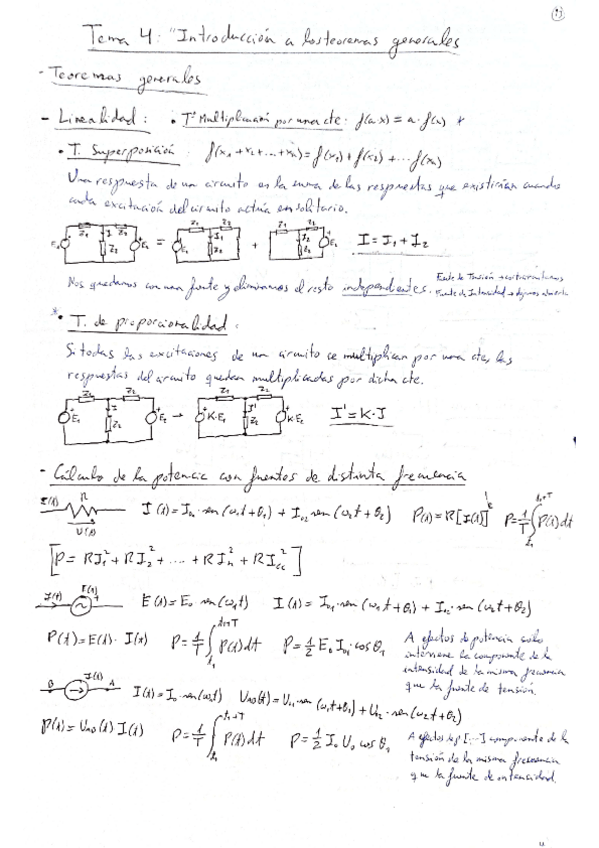 Tema 4: "Introducción a los teoremas generales
- Teoremas generales
- Linealidad: • Tª Multiplicación por una cte: f(a x) = a · f(x) *
• T. Superposición: f(x₁ + x₂ + ... + xₙ) = f(x₁) + f(x₂) + ... f(xₙ)
Una respuesta de un circuito es la suma de las respuestas que existirían cuando
cada excitación del circuito actúa en solitario.
Z₁ Z₂ I Z₃ E₁ E₂ = Z₁ Z₂ I₁ Z₃ E₁ + Z₁ Z₂ I₂ Z₃ E₂ I = I₁ + I₂
Nos quedamos con una fuente y eliminamos el resto independientes. Fuente de Tensión → cortocircuitamos
Fuente de Intensidad → dejamos abierto
* • T. de proporcionalidad:
Si todas las excitaciones de un circuito se multiplican por una cte, las
respuestas del circuito quedan multiplicadas por dicha cte.
Z₁ Z₂ E₁ I Z₃ E₂ → Z₁ Z₂ K·E₁ I' Z₃ K·E₂ I' = K · I
- Cálculo de la potencia con fuentes de distinta frecuencia
I(t) R U(t) I(t) = I₀₁ · sen(ω₁t + θ₁) + I₀₂ sen(ω₂t + θ₂) P(t) = R[I(t)]² P = 1/T ∫ P(t) dt
[P = RI₁² + RI₂² + .... + RIₙ² + RI²cc]
I(t) E(t) E(t) = E₀ sen(ω₁t) I(t) = I₀₁ · sen(ω₁t + θ₁) + I₀₂ · sen(ω₂t + θ₂)
P(t) = E(t) · I(t) P = 1/T ∫ P(t) dt P = 1/2 E₀ I₀₁ · cos θ₁ A efectos de potencia solo
interviene la componente de la
intensidad de la misma frecuencia
que la fuente de tensión.
B I(t) A I(t) = I₀ · sen(ω₁t) U_AB(t) = U₀₁ · sen(ω₁t + θ₁) + U₀₂ · sen(ω₂t + θ₂)
P(t) = U_AB(t) I(t) P = 1/T ∫ P(t) dt P = 1/2 I₀ U₀ cos θ₁ A efectos de p [...] componente de la
tensión de la misma frecuencia
que la fuente de intensidad.